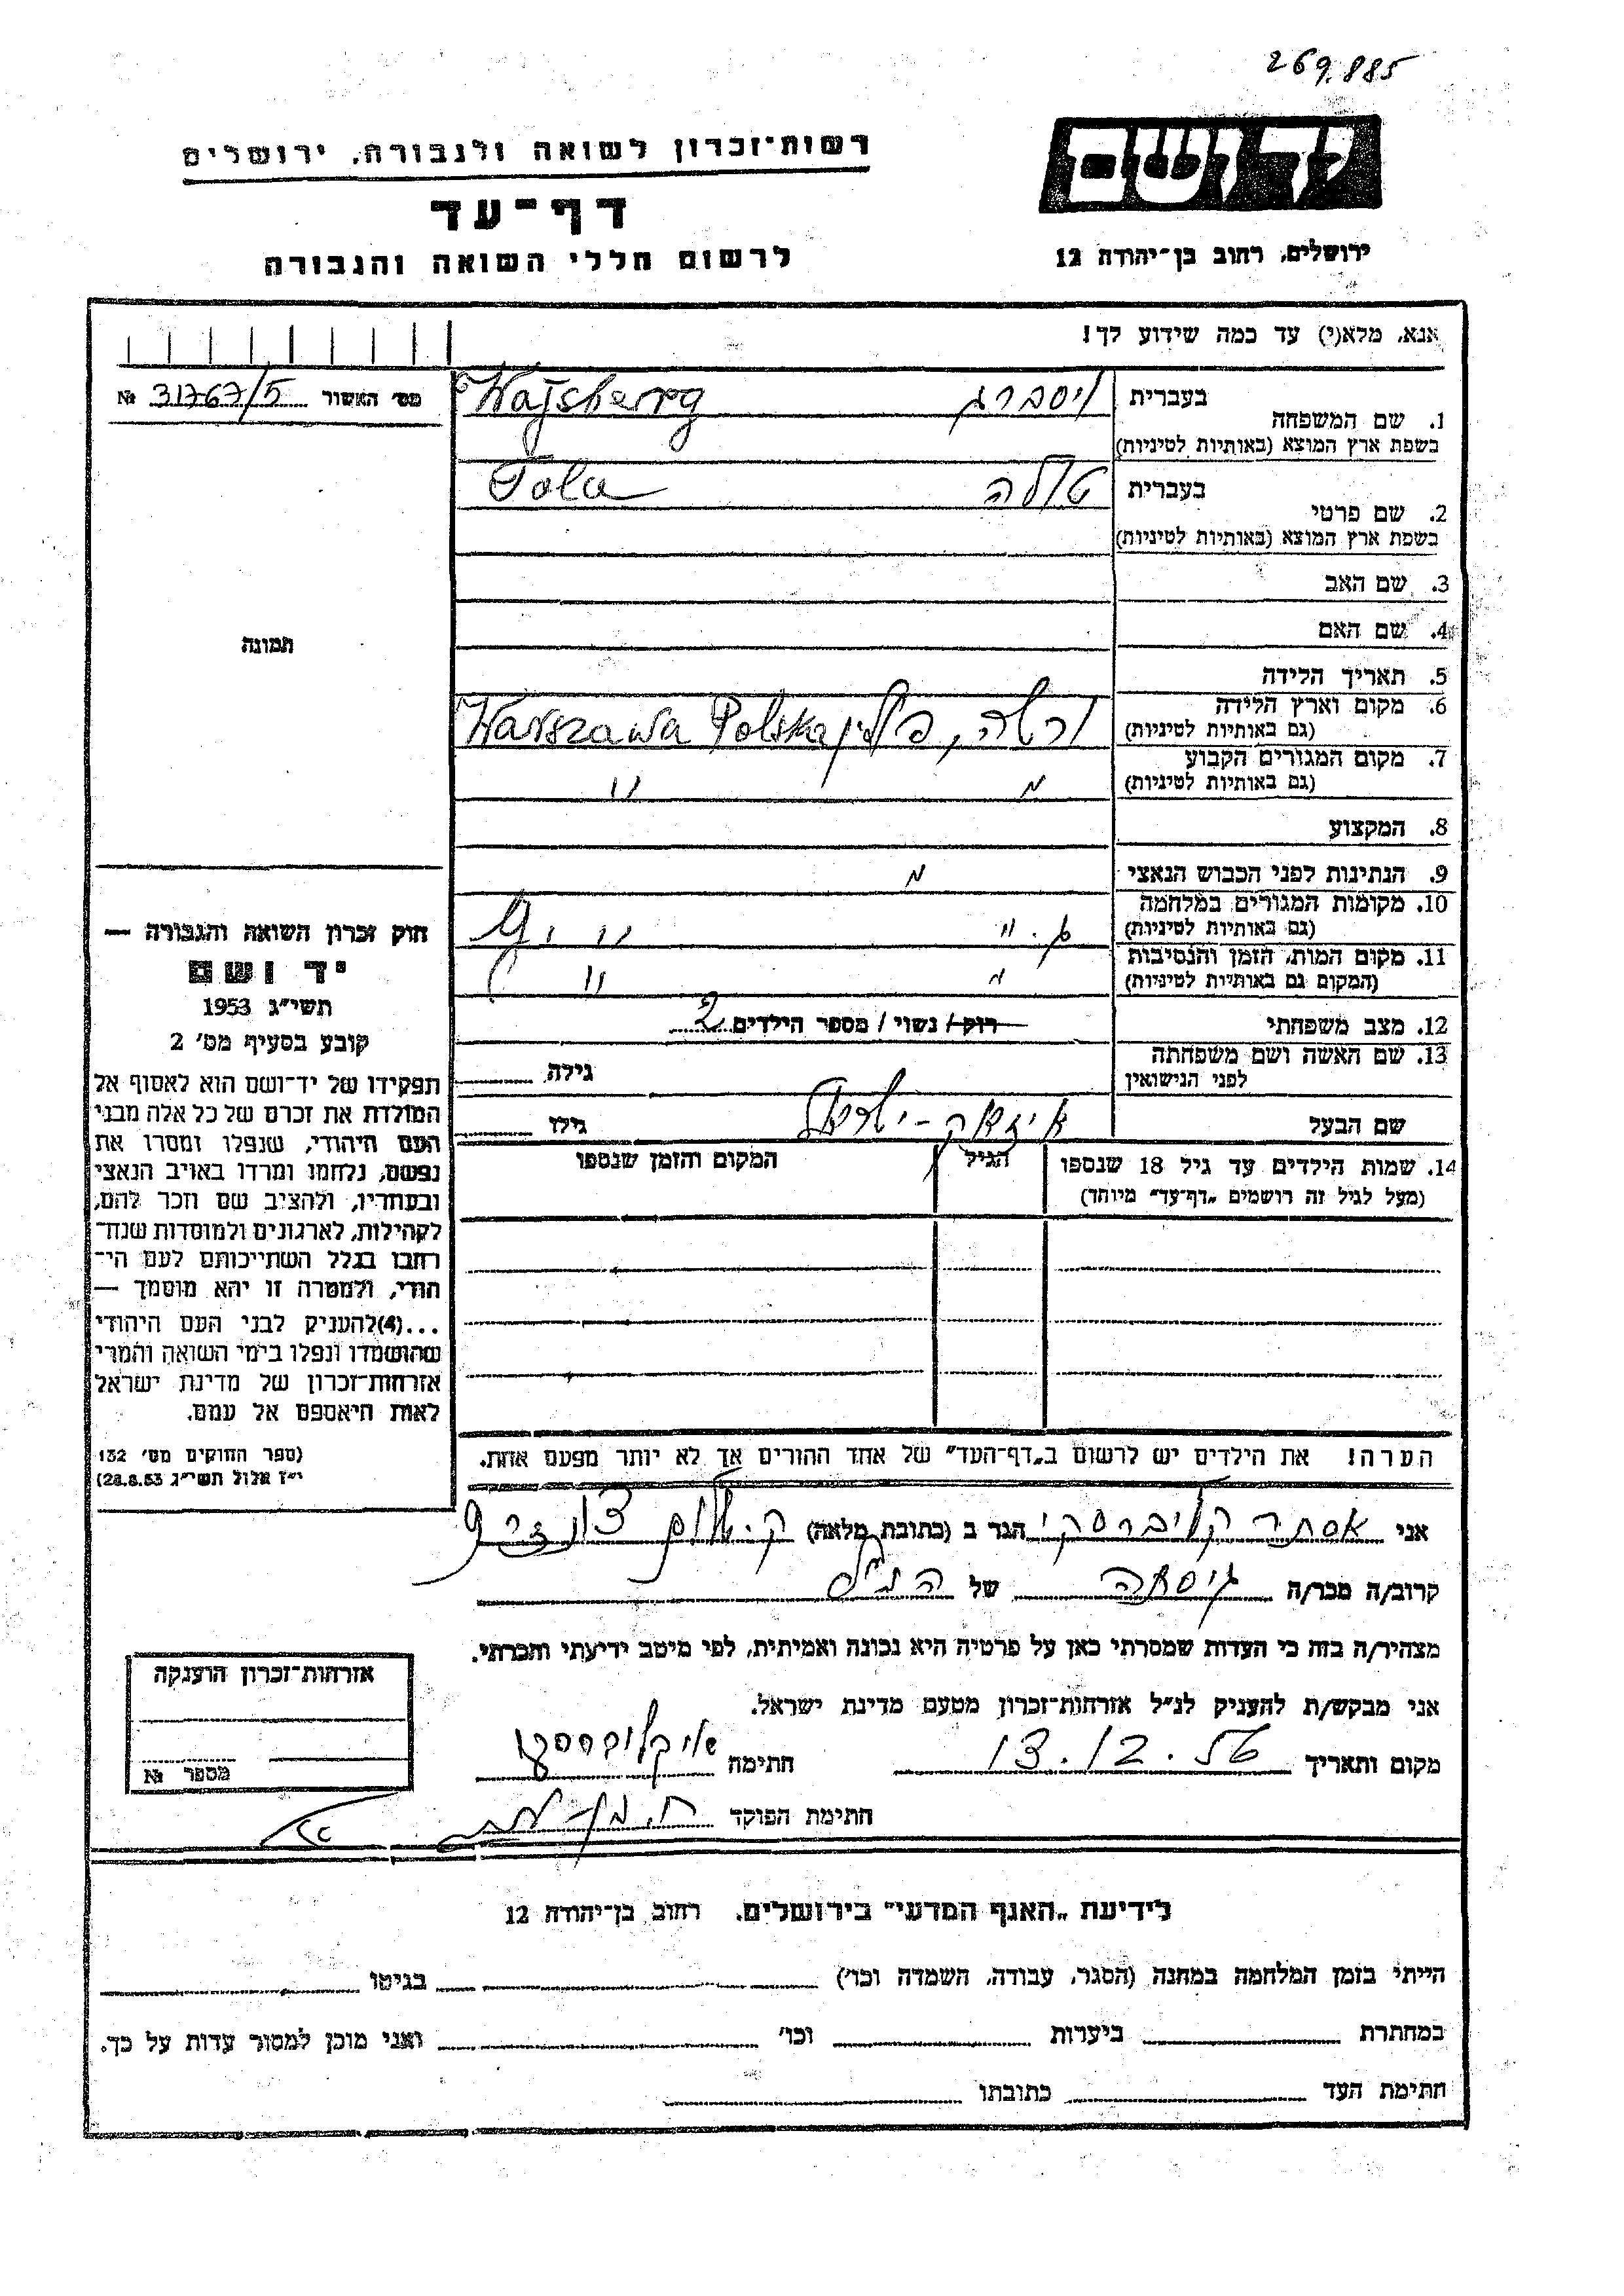 269.885
יד ושם
רשות־זכרון לשואה ולגבורה, ירושלים
דף־עד
לרשום חללי השואה והגבורה
ירושלים, רחוב בן־יהודה 12
אנא, מלא(י) עד כמה שידוע לך!
מס׳ האשור 31767/5 №
1. שם המשפחה
בעברית ויסברג Wajsberg
בשפת ארץ המוצא (באותיות לטיניות)
2. שם פרטי
בעברית טולה Tola
בשפת ארץ המוצא (באותיות לטיניות)
3. שם האב
4. שם האם
תמונה
5. תאריך הלידה
6. מקום וארץ הלידה
(גם באותיות לטיניות)
ורשה, פולין Warszawa Polska
7. מקום המגורים הקבוע
(גם באותיות לטיניות)
״ ״
8. המקצוע
9. הנתינות לפני הכבוש הנאצי
״
10. מקומות המגורים במלחמה
(גם באותיות לטיניות)
11. מקום המות, הזמן והנסיבות
(המקום גם באותיות לטיניות)
״ ״
12. מצב משפחתי
רוק / נשוי / מספר הילדים 2
13. שם האשה ושם משפחתה
לפני הנישואין
גילה
שם הבעל
גילו
14. שמות הילדים עד גיל 18 שנספו
(מעל לגיל זה רושמים „דף־עד״ מיוחד)
הגיל
המקום והזמן שנספו
חוק זכרון השואה והגבורה —
יד ושם
תשי״ג 1953
קובע בסעיף מס׳ 2
תפקידו של יד־ושם הוא לאסוף אל
המולדת את זכרם של כל אלה מבני
העם היהודי, שנפלו ומסרו את
נפשם, נלחמו ומרדו באויב הנאצי
ובעוזריו, ולהציב שם וזכר להם,
לקהילות, לארגונים ולמוסדות שנח־
רחבו בגלל השתייכותם לעם הי־
הודי, ולמטרה זו יהא מוסמך —
...(4)להעניק לבני העם היהודי
שהושמדו ונפלו בימי השואה והמרי
אזרחות־זכרון של מדינת ישראל
לאות היאספם אל עמם.
(ספר החוקים מס׳ 132
י״ז אלול תשי״ג 28.8.53)
הערה! את הילדים יש לרשום ב„דף־העד״ של אחד ההורים אך לא יותר מפעם אחת.
אני אסתר הגר ב (כתובת מלאה)
קרוב/ה מכר/ה גיסתה של הנ״ל
מצהיר/ה בזה כי העדות שמסרתי כאן על פרטיה היא נכונה ואמיתית, לפי מיטב ידיעתי והכרתי.
אני מבקש/ת להעניק לנ״ל אזרחות־זכרון מטעם מדינת ישראל.
מקום ותאריך 13.12.56 חתימה
חתימת הפוקד
אזרחות־זכרון הוענקה
מספר №
לידיעת „האגף המדעי״ בירושלים. רחוב בן־יהודה 12
הייתי בזמן המלחמה במחנה (הסגר, עבודה, השמדה וכו׳) בגיטו
במחתרת ביערות וכו׳ ואני מוכן למסור עדות על כך.
חתימת העד כתובתו